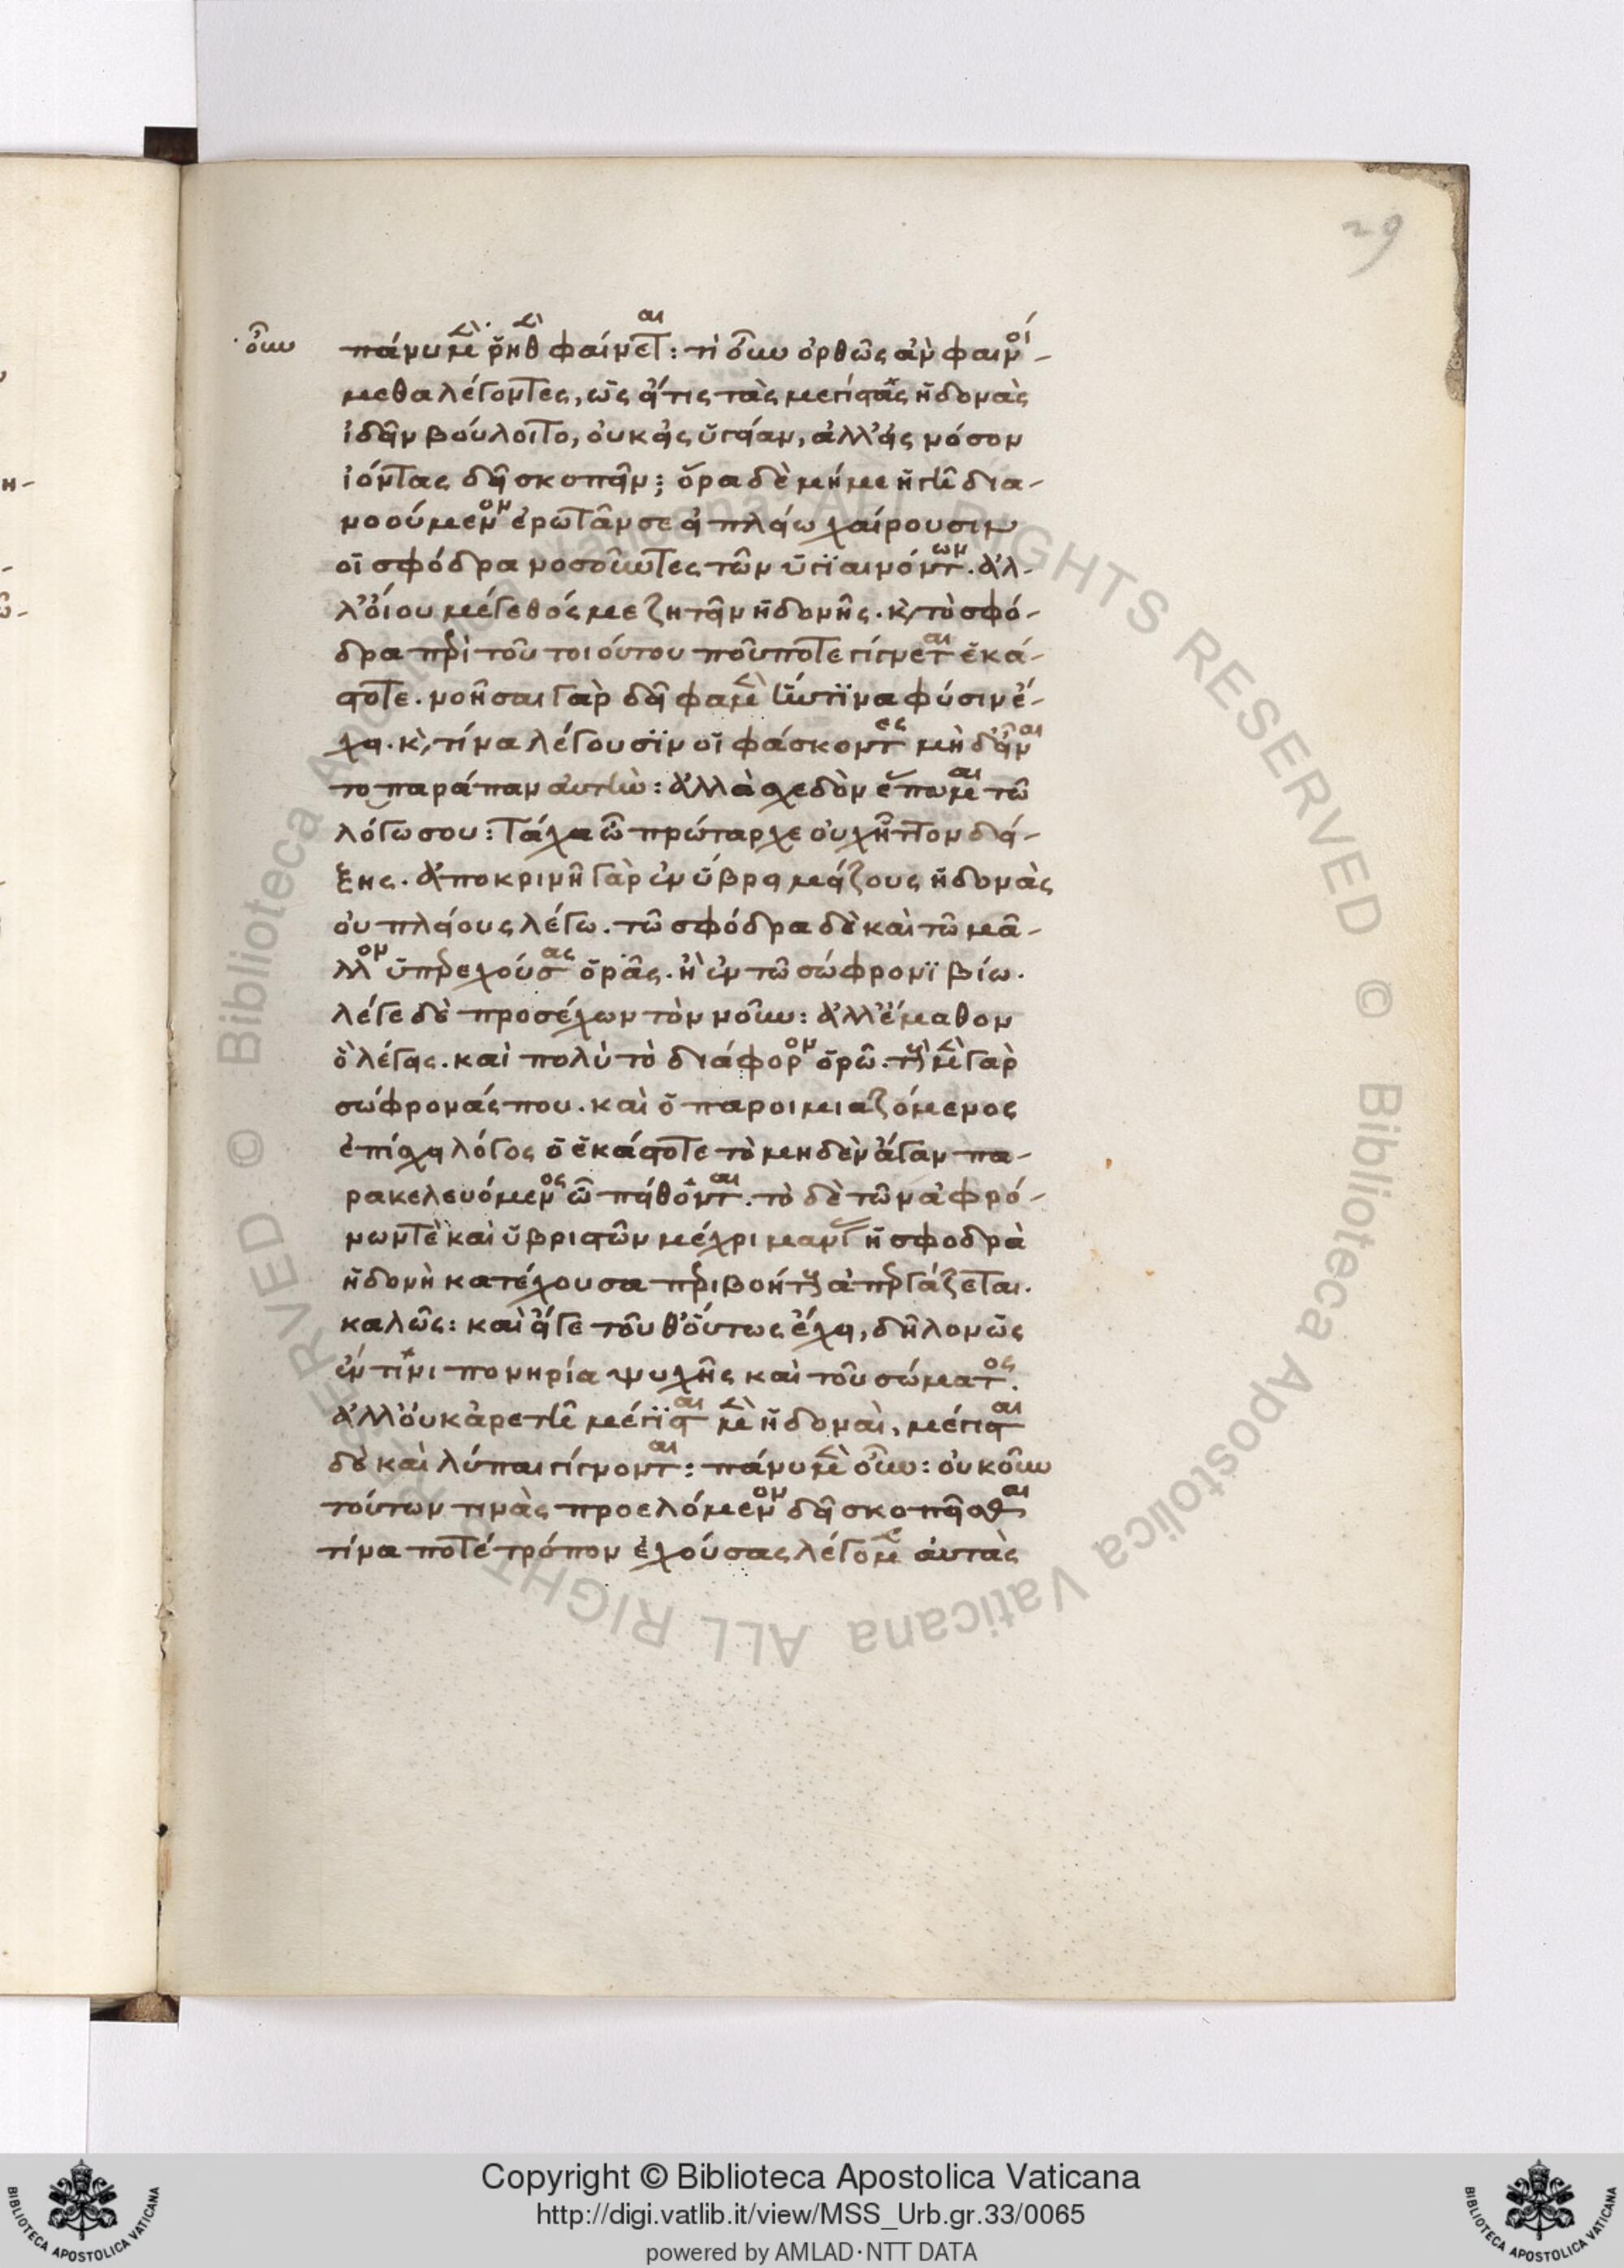 29
οὖν
πάνυ μὲν ῥηθὲν φαίνεται: τί οὖν ὀρθῶς ἂν φαινοί-
μεθα λέγοντες, ὡς εἴ τις τὰς μεγίστας ἡδονὰς
ἰδεῖν βούλοιτο, οὐκ εἰς ὑγίειαν, ἀλλ' εἰς νόσον
ἰόντας δεῖ σκοπεῖν; ὅρα δὲ μή με ἡγῇ δια-
νοούμενον ἐρωτᾶν σε εἰ πλείω χαίρουσιν
οἱ σφόδρα νοσοῦντες τῶν ὑγιαινόντων. ἀλ-
λ' οἴου μέγεθός με ζητεῖν ἡδονῆς. καὶ τὸ σφό-
δρα περὶ τοῦ τοιούτου ποῦ ποτε γίγνεται ἑκά-
στοτε. νοῆσαι γὰρ δεῖ φαμὲν ἥντινα φύσιν ἔ-
χει. καὶ τίνα λέγουσιν οἱ φάσκοντες μηδ' εἶναι
τοπαράπαν αὐτὴν: ἀλλὰ σχεδὸν ἕπομαι τῷ
λόγῳ σου: Τάχα ὦ πρώταρχε οὐχ ἧττον δεί-
ξεις. ἀποκρινῇ γὰρ ἐν ὕβρει μείζους ἡδονὰς
οὐ πλείους λέγω. τῷ σφόδρα δὲ καὶ τῷ μᾶ-
λλον ὑπερεχούσας ὁρᾷς. ἢ ἐν τῷ σώφρονι βίῳ.
λέγε δὲ προσέχων τὸν νοῦν: ἀλλ' ἔμαθον
ὃ λέγεις. καὶ πολὺ τὸ διάφορον ὁρῶ. τοὺς μὲν γὰρ
σώφρονάς που. καὶ ὁ παροιμιαζόμενος
ἐπίσχει λόγος ὁ ἑκάστοτε τὸ μηδὲν ἄγαν πα-
ρακελευόμενος ᾧ πείθονται. τὸ δὲ τῶν ἀφρό-
νων τὲ καὶ ὑβριστῶν μέχρι μανίας ἡ σφοδρὰ
ἡδονὴ κατέχουσα περιβοήτους ἀπεργάζεται.
καλῶς: καὶ εἴγε τοῦθ' οὕτως ἔχει, δῆλον ὡς
ἔν τινι πονηρίᾳ ψυχῆς καὶ τοῦ σώματος.
ἀλλ' οὐκ ἀρετῇ μέγισται μὲν ἡδοναὶ, μέγισται
δὲ καὶ λύπαι γίγνονται: πάνυ μὲν οὖν: οὐκοῦν
τούτων τινὰς προελόμενον δεῖ σκοπεῖσθαι
τίνα ποτέ τρόπον ἐχούσας λέγομεν αὐτὰς
Copyright © Biblioteca Apostolica Vaticana
http://digi.vatlib.it/view/MSS_Urb.gr.33/0065
powered by AMLAD·NTT DATA